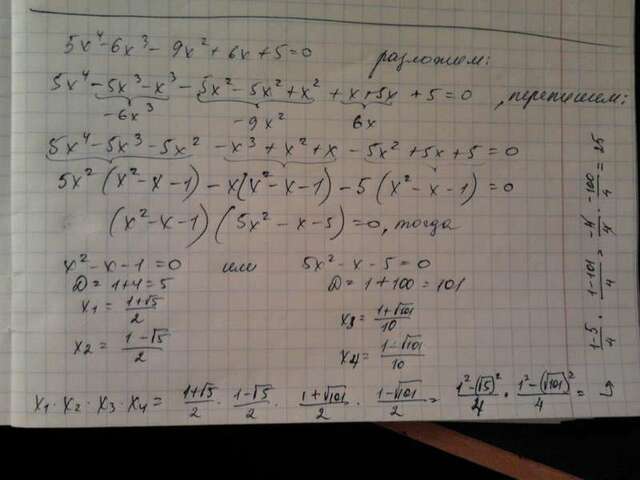 5x⁴-6x³-9x²+6x+5=0 разложем:
5x⁴-5x³-x³-5x²-5x²+x²+x+5x+5=0, перепишем:
-6x³ -9x² 6x
5x⁴-5x³-5x²-x³+x²+x-5x²+5x+5=0
5x²(x²-x-1)-x(x²-x-1)-5(x²-x-1)=0
(x²-x-1)(5x²-x-5)=0, тогда
x²-x-1=0 или 5x²-x-5=0
D=1+4=5 D=1+100=101
x₁=(1+√5)/2 x₃=(1+√101)/10
x₂=(1-√5)/2 x₄=(1-√101)/10
x₁·x₂·x₃·x₄=(1+√5)/2·(1-√5)/2·(1+√101)/2·(1-√101)/2=(1²-(√5)²)/4·(1²-(√101)²)/4=
(1-5)/4·(1-101)/4=-4/4·-100/4=25